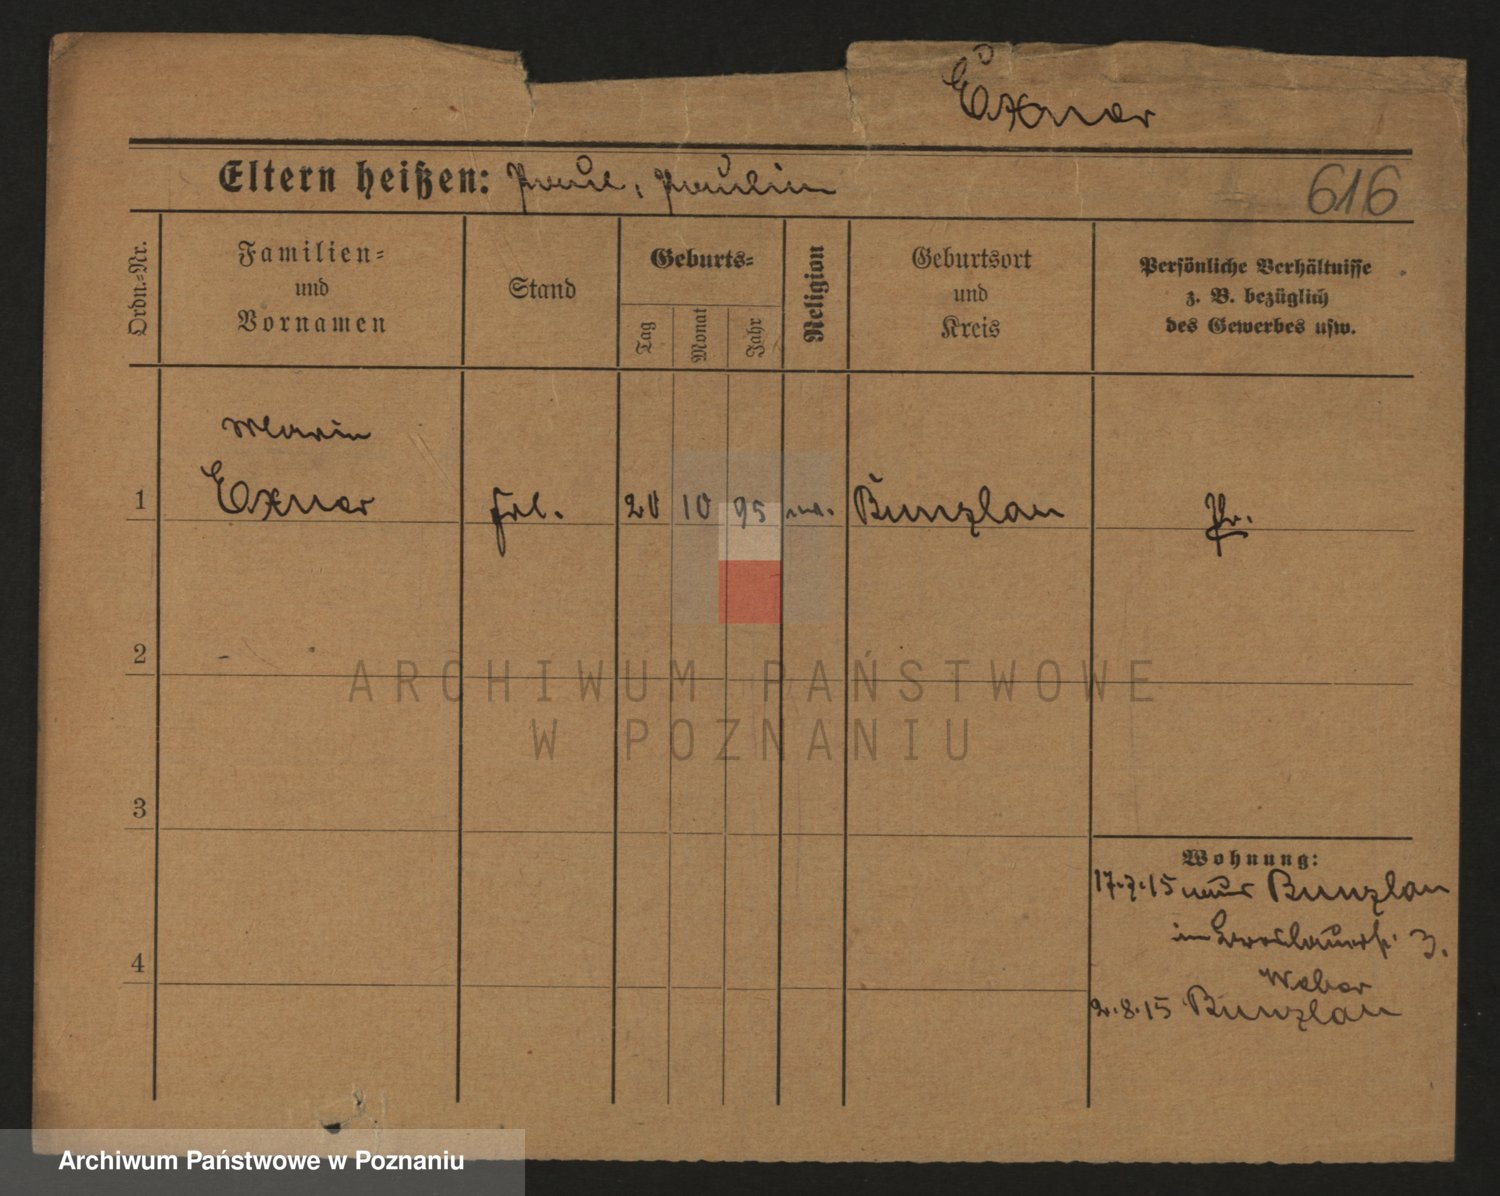 Exner
Eltern heißen: Paul, Paulin
616
Ordn.-Nr.
Familien-
und
Vornamen
Stand
Geburts-
Tag
Monat
Jahr
Religion
Geburtsort
und
Kreis
Persönliche Verhältnisse
z. B. bezüglich
des Gewerbes usw.
Marie
1 Exner Frl. 20 10 95 ev. Bunzlau Pr.
2
ARCHIWUM PAŃSTWOWE
W POZNANIU
3
Wohnung:
17.7.15 Bunzlau
3.
4
Weber
2.8.15 Bunzlau
Archiwum Państwowe w Poznaniu